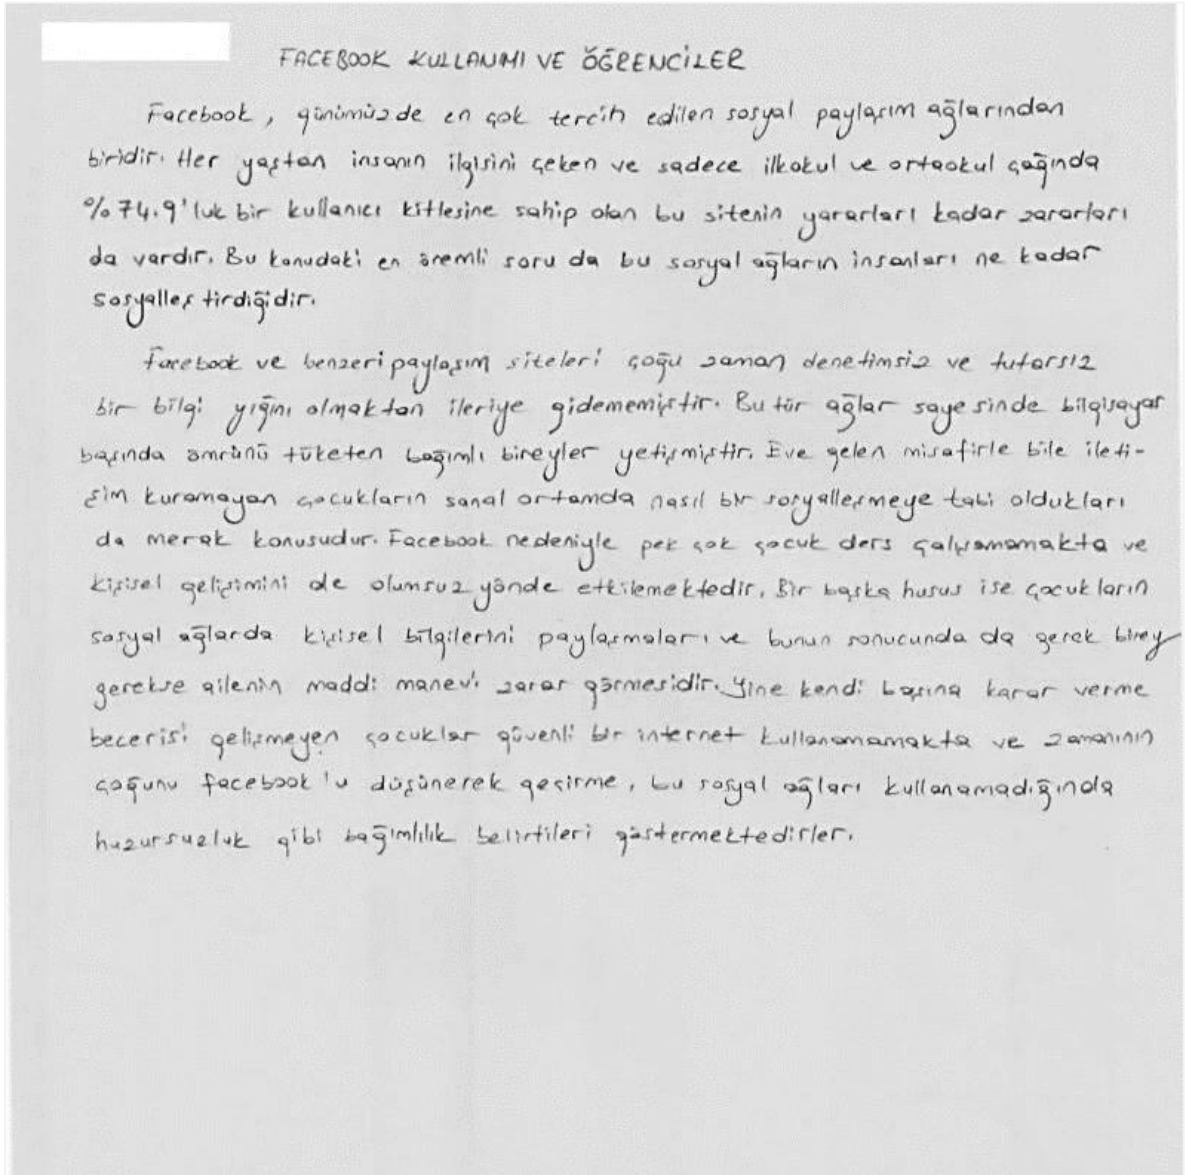 FACEBOOK KULLANIMI VE ÖĞRENCİLER
Facebook, günümüzde en çok tercih edilen sosyal paylaşım ağlarından
biridir. Her yaştan insanın ilgisini çeken ve sadece ilkokul ve ortaokul çağında
%74.9'luk bir kullanıcı kitlesine sahip olan bu sitenin yararları kadar zararları
da vardır. Bu konudaki en önemli soru da bu sosyal ağların insanları ne kadar
sosyalleştirdiğidir.
Facebook ve benzeri paylaşım siteleri çoğu zaman denetimsiz ve tutarsız
bir bilgi yığını olmaktan ileriye gidememiştir. Bu tür ağlar sayesinde bilgisayar
başında ömrünü tüketen bağımlı bireyler yetişmiştir. Eve gelen misafirle bile ileti-
şim kuramayan çocukların sanal ortamda nasıl bir sosyalleşmeye tabi oldukları
da merak konusudur. Facebook nedeniyle pek çok çocuk ders çalışamamakta ve
kişisel gelişimini de olumsuz yönde etkilemektedir. Bir başka husus ise çocukların
sosyal ağlarda kişisel bilgilerini paylaşmaları ve bunun sonucunda da gerek birey
gerekse ailenin maddi manevi zarar görmesidir. Yine kendi başına karar verme
becerisi gelişmeyen çocuklar güvenli bir internet kullanamamakta ve zamanının
çoğunu facebook'u düşünerek geçirme, bu sosyal ağları kullanamadığında
huzursuzluk gibi bağımlılık belirtileri göstermektedirler.